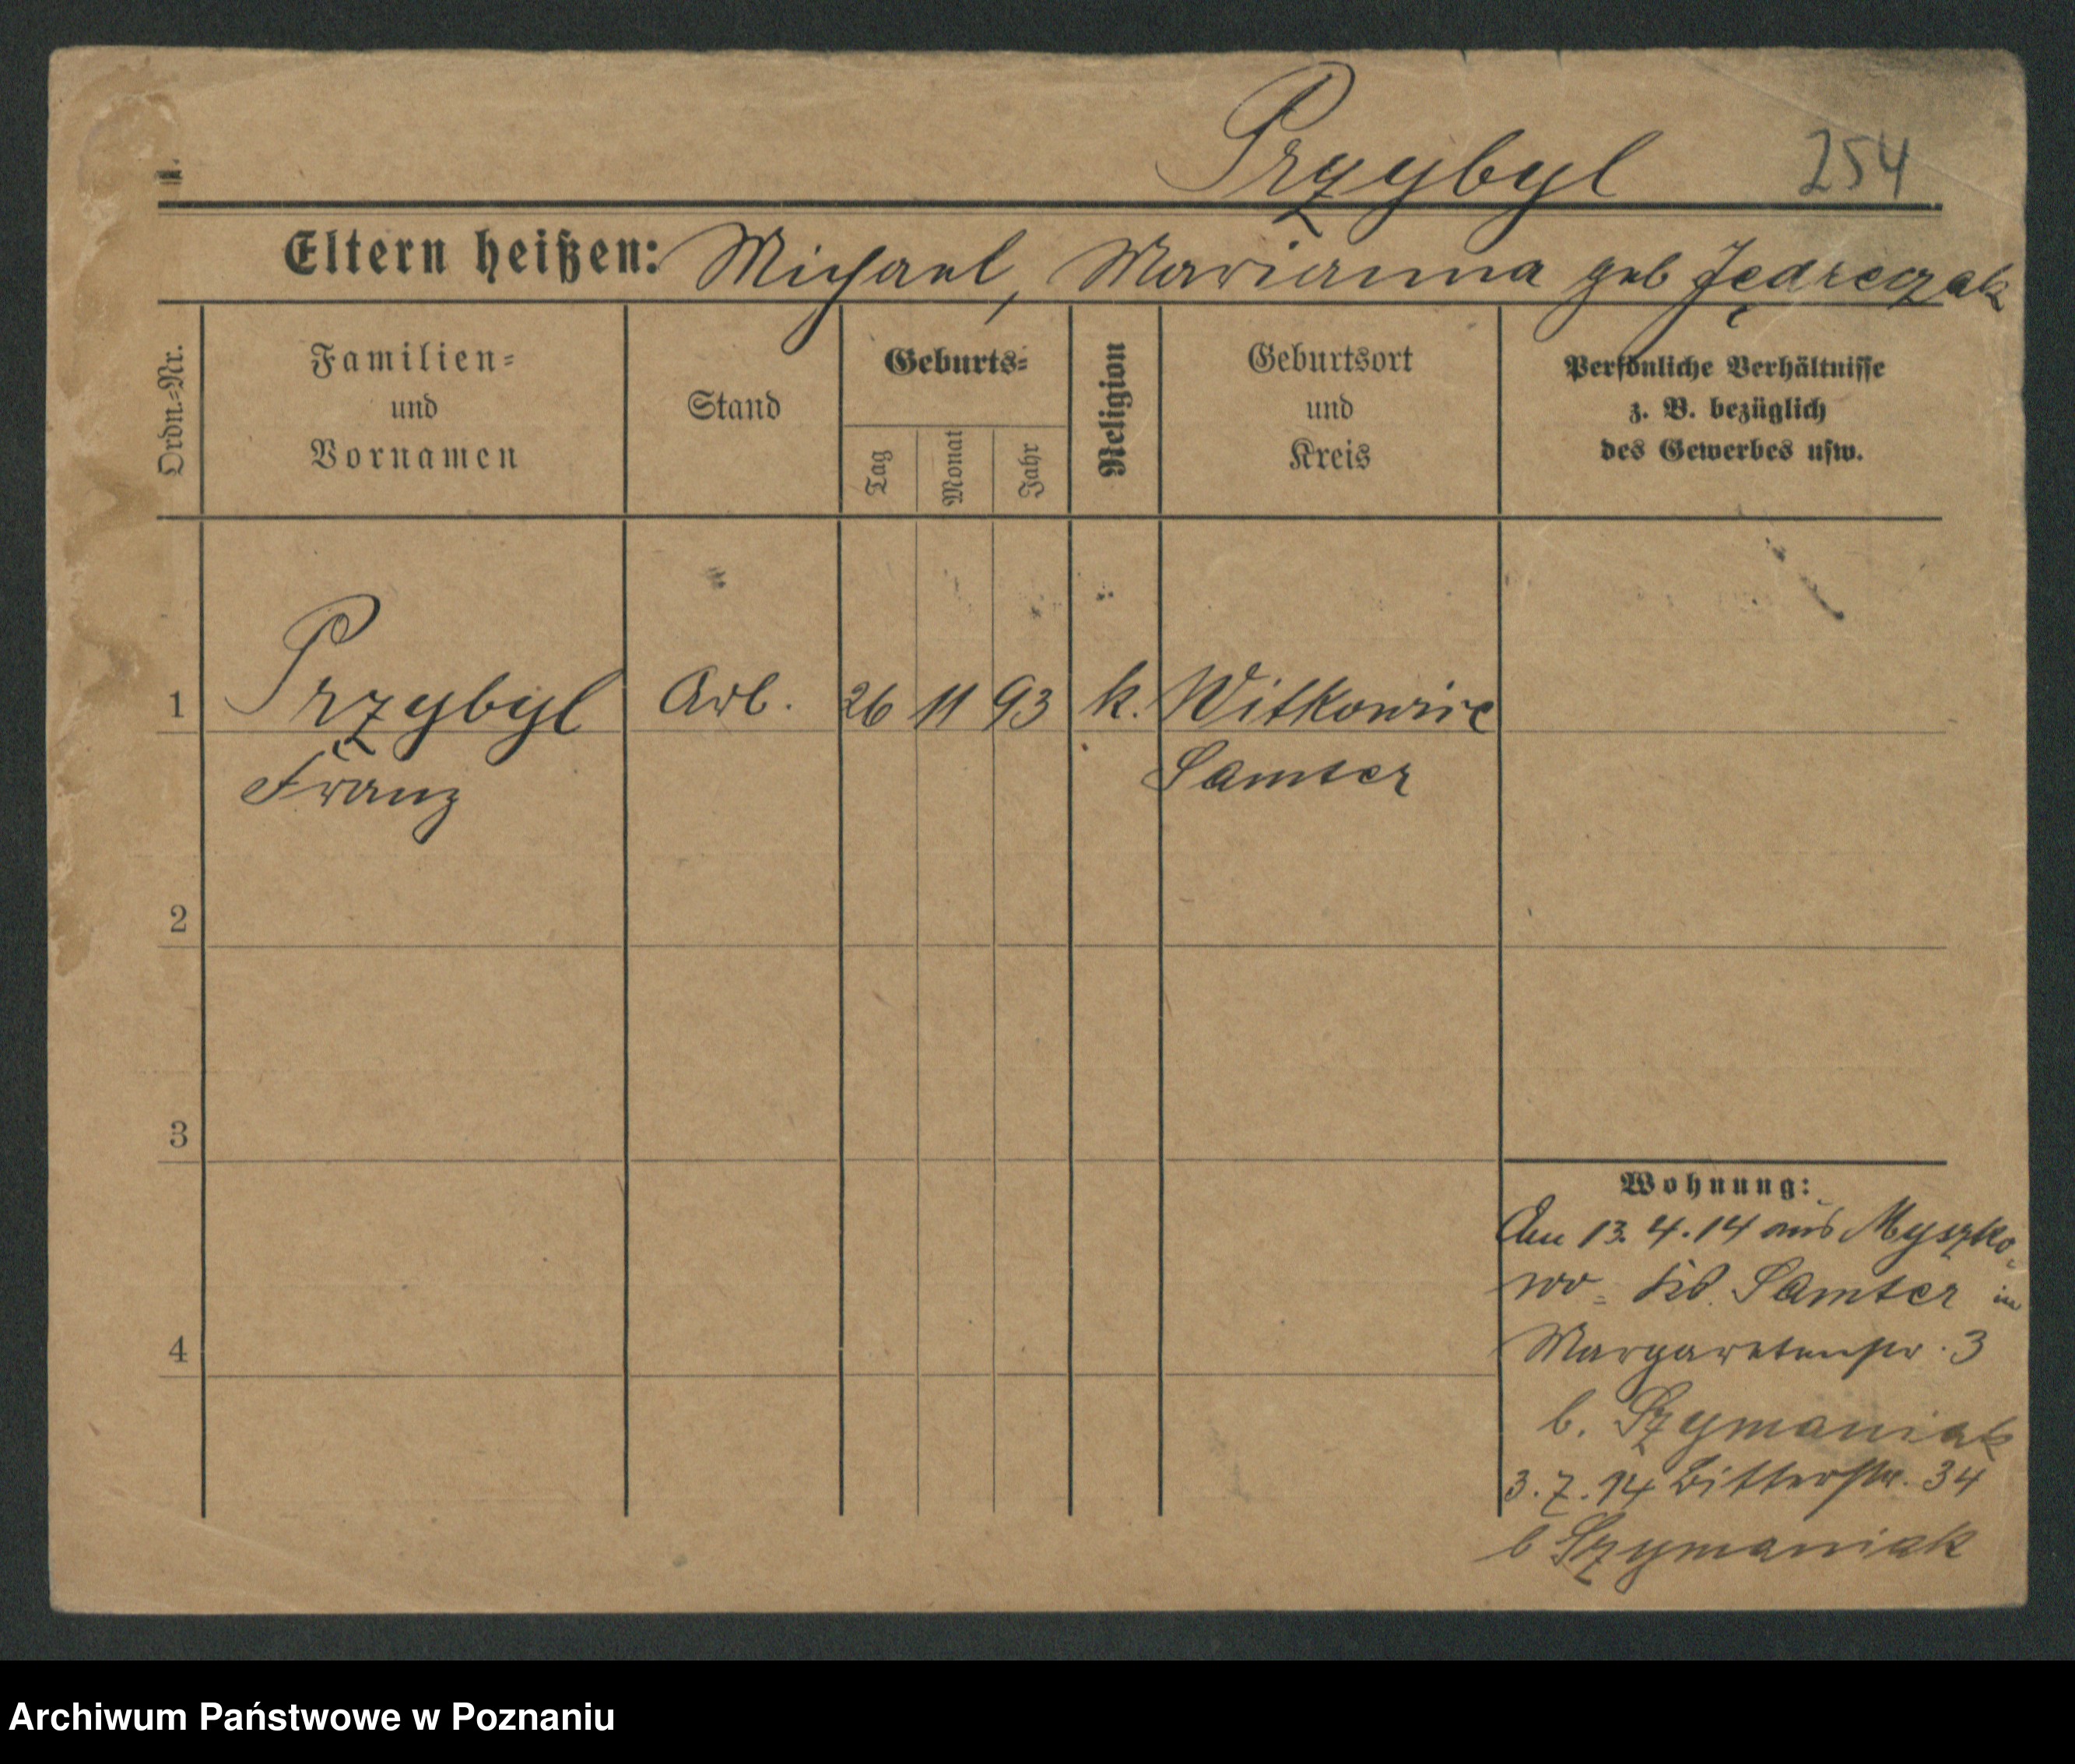 Przybyl 254
Eltern heißen: Michael, Marianna geb Jędreczak
Ordn.-Nr.
Familien-
und
Vornamen
Stand
Geburts-
Tag
Monat
Jahr
Religion
Geburtsort
und
Kreis
Persönliche Verhältnisse
z. B. bezüglich
des Gewerbes usw.
1 Przybyl Arb. 26 11 93 k. Witkowice
Franz Samter
2
3
4
Wohnung:
Am 13.4.14 aus Myszko-
wo - Kr. Samter in
Margaretenstr. 3
b. Szymaniak
3.7.14 Bitterstr. 34
b Szymaniak
Archiwum Państwowe w Poznaniu